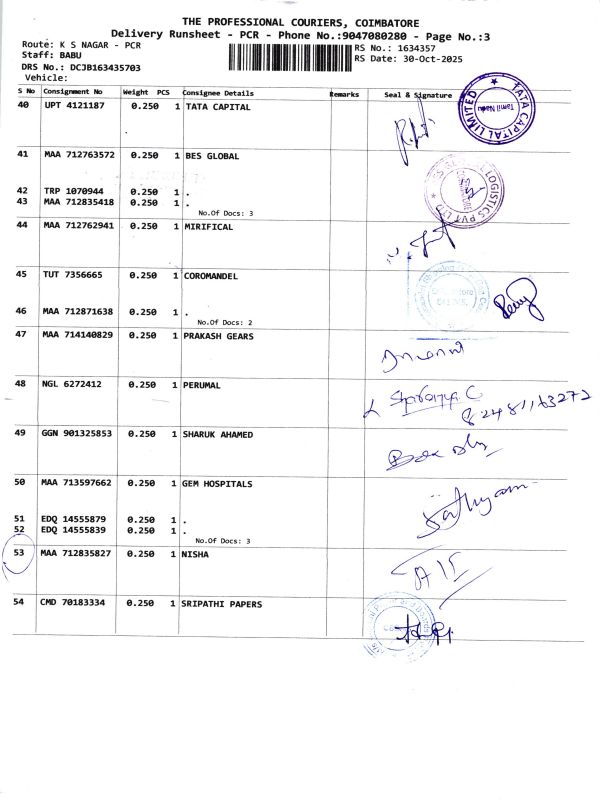 THE PROFESSIONAL COURIERS, COIMBATORE
Delivery Runsheet - PCR - Phone No.:9047080280 - Page No.:3
Route: K S NAGAR - PCR
RS No.: 1634357
Staff: BABU
RS Date: 30-Oct-2025
DRS No.: DCJB163435703
Vehicle:
S No Consignment No Weight PCS Consignee Details Remarks Seal & Signature
40 UPT 4121187 0.250 1 TATA CAPITAL
TATA CAPITAL LIMITED
Tamil Nadu
41 MAA 712763572 0.250 1 BES GLOBAL
LOGISTICS PVT LTD
42 TRP 1070944 0.250 1 .
43 MAA 712835418 0.250 1 .
No.Of Docs: 3
44 MAA 712762941 0.250 1 MIRIFICAL
45 TUT 7356665 0.250 1 COROMANDEL
46 MAA 712871638 0.250 1 .
No.Of Docs: 2
47 MAA 714140829 0.250 1 PRAKASH GEARS
48 NGL 6272412 0.250 1 PERUMAL
49 GGN 901325853 0.250 1 SHARUK AHAMED
50 MAA 713597662 0.250 1 GEM HOSPITALS
51 EDQ 14555879 0.250 1 .
52 EDQ 14555839 0.250 1 .
No.Of Docs: 3
53 MAA 712835827 0.250 1 NISHA
54 CMD 70183334 0.250 1 SRIPATHI PAPERS